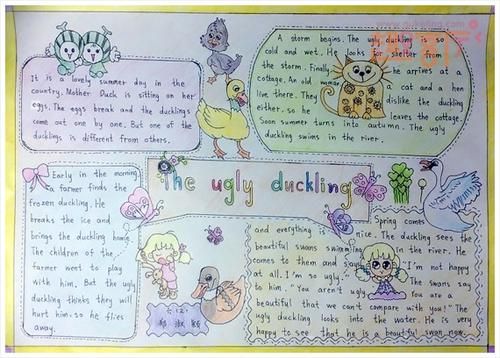 It is a lovely summer day in the
country. Mother Duck is sitting on her
eggs. The eggs break and the ducklings
come out one by one. But one of the
ducklings is different from others.
A storm begins. The ugly duckling is so
cold and wet. He looks for shelter from
the storm. Finally he arrives at a
cottage. An old woman cat and a hen
live there. They dislike the duckling
either, so he leaves the cottage.
Soon summer turns into autumn. The ugly
duckling swims in the river.
The ugly duckling
Early in the morning
a farmer finds the
frozen duckling. He
breaks the ice and
brings the duckling home.
The children of the
farmer went to play
with him. But the ugly
duckling thinks they will
hurt him. so he flies
away.
Spring comes
and everything is nice. The duckling sees the
beautiful swans swimming in the river. He
comes to them and say "I'm not happy
at all. I'm so ugly." The swans say
to him. "You aren't ugly You are a
beautiful that we can't compare with you!" The
ugly duckling looks into the water. He is very
happy to see that he is a beautiful swan now.